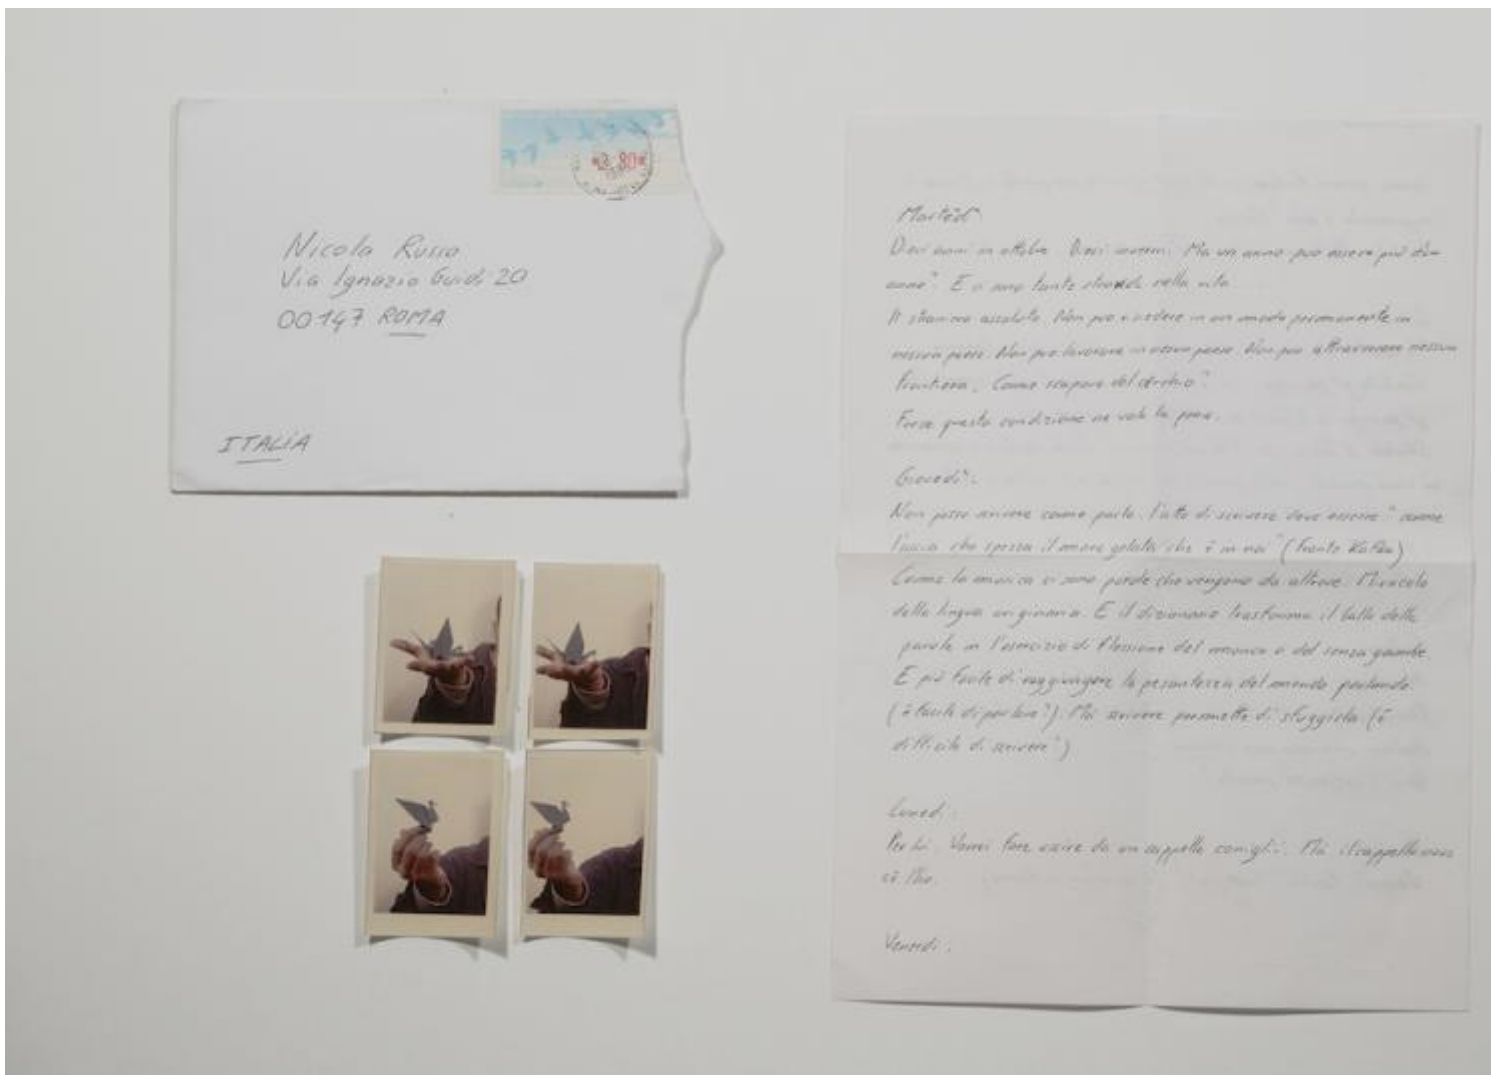 Nicola Russo
Via Ignazio Guidi 20
00147 ROMA
ITALIA
Martedì
Dieci anni in ottobre. Dieci inverni. Ma un anno può essere più d'un
anno? E ci sono tante strade nella vita
Non può risiedere in un modo permanente in
nessun paese. Non può lavorare in nessun paese. Non può attraversare nessun
frontiera. Come scapare del cerchio?
Forse questo condizione ne vale la pena.
Giovedì:
Non posso scrivere come parlo. l'atto di scrivere deve essere "come
l'ascia che spezza il mare gelato che è in noi" (Frantz Kafka)
Come la musica ci sono parole che vengono da altrove. Miracolo
della lingua originaria. E il dizionario trasforma il ballo delle
parole in l'esercizio di flessione del monco o del senza gambe.
E più facile di raggiungere la pesantezza del mondo parlando.
(è facile di parlare?) Ma scrivere permette di (è
difficile di scrivere?)
Lunedì:
Vorrei fare uscire da un cappello conigli. Ma il cappello
Venerdì: